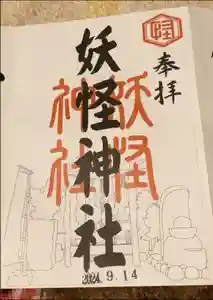 怪
奉拝
妖怪神社
妖怪
神社
2024.9.14